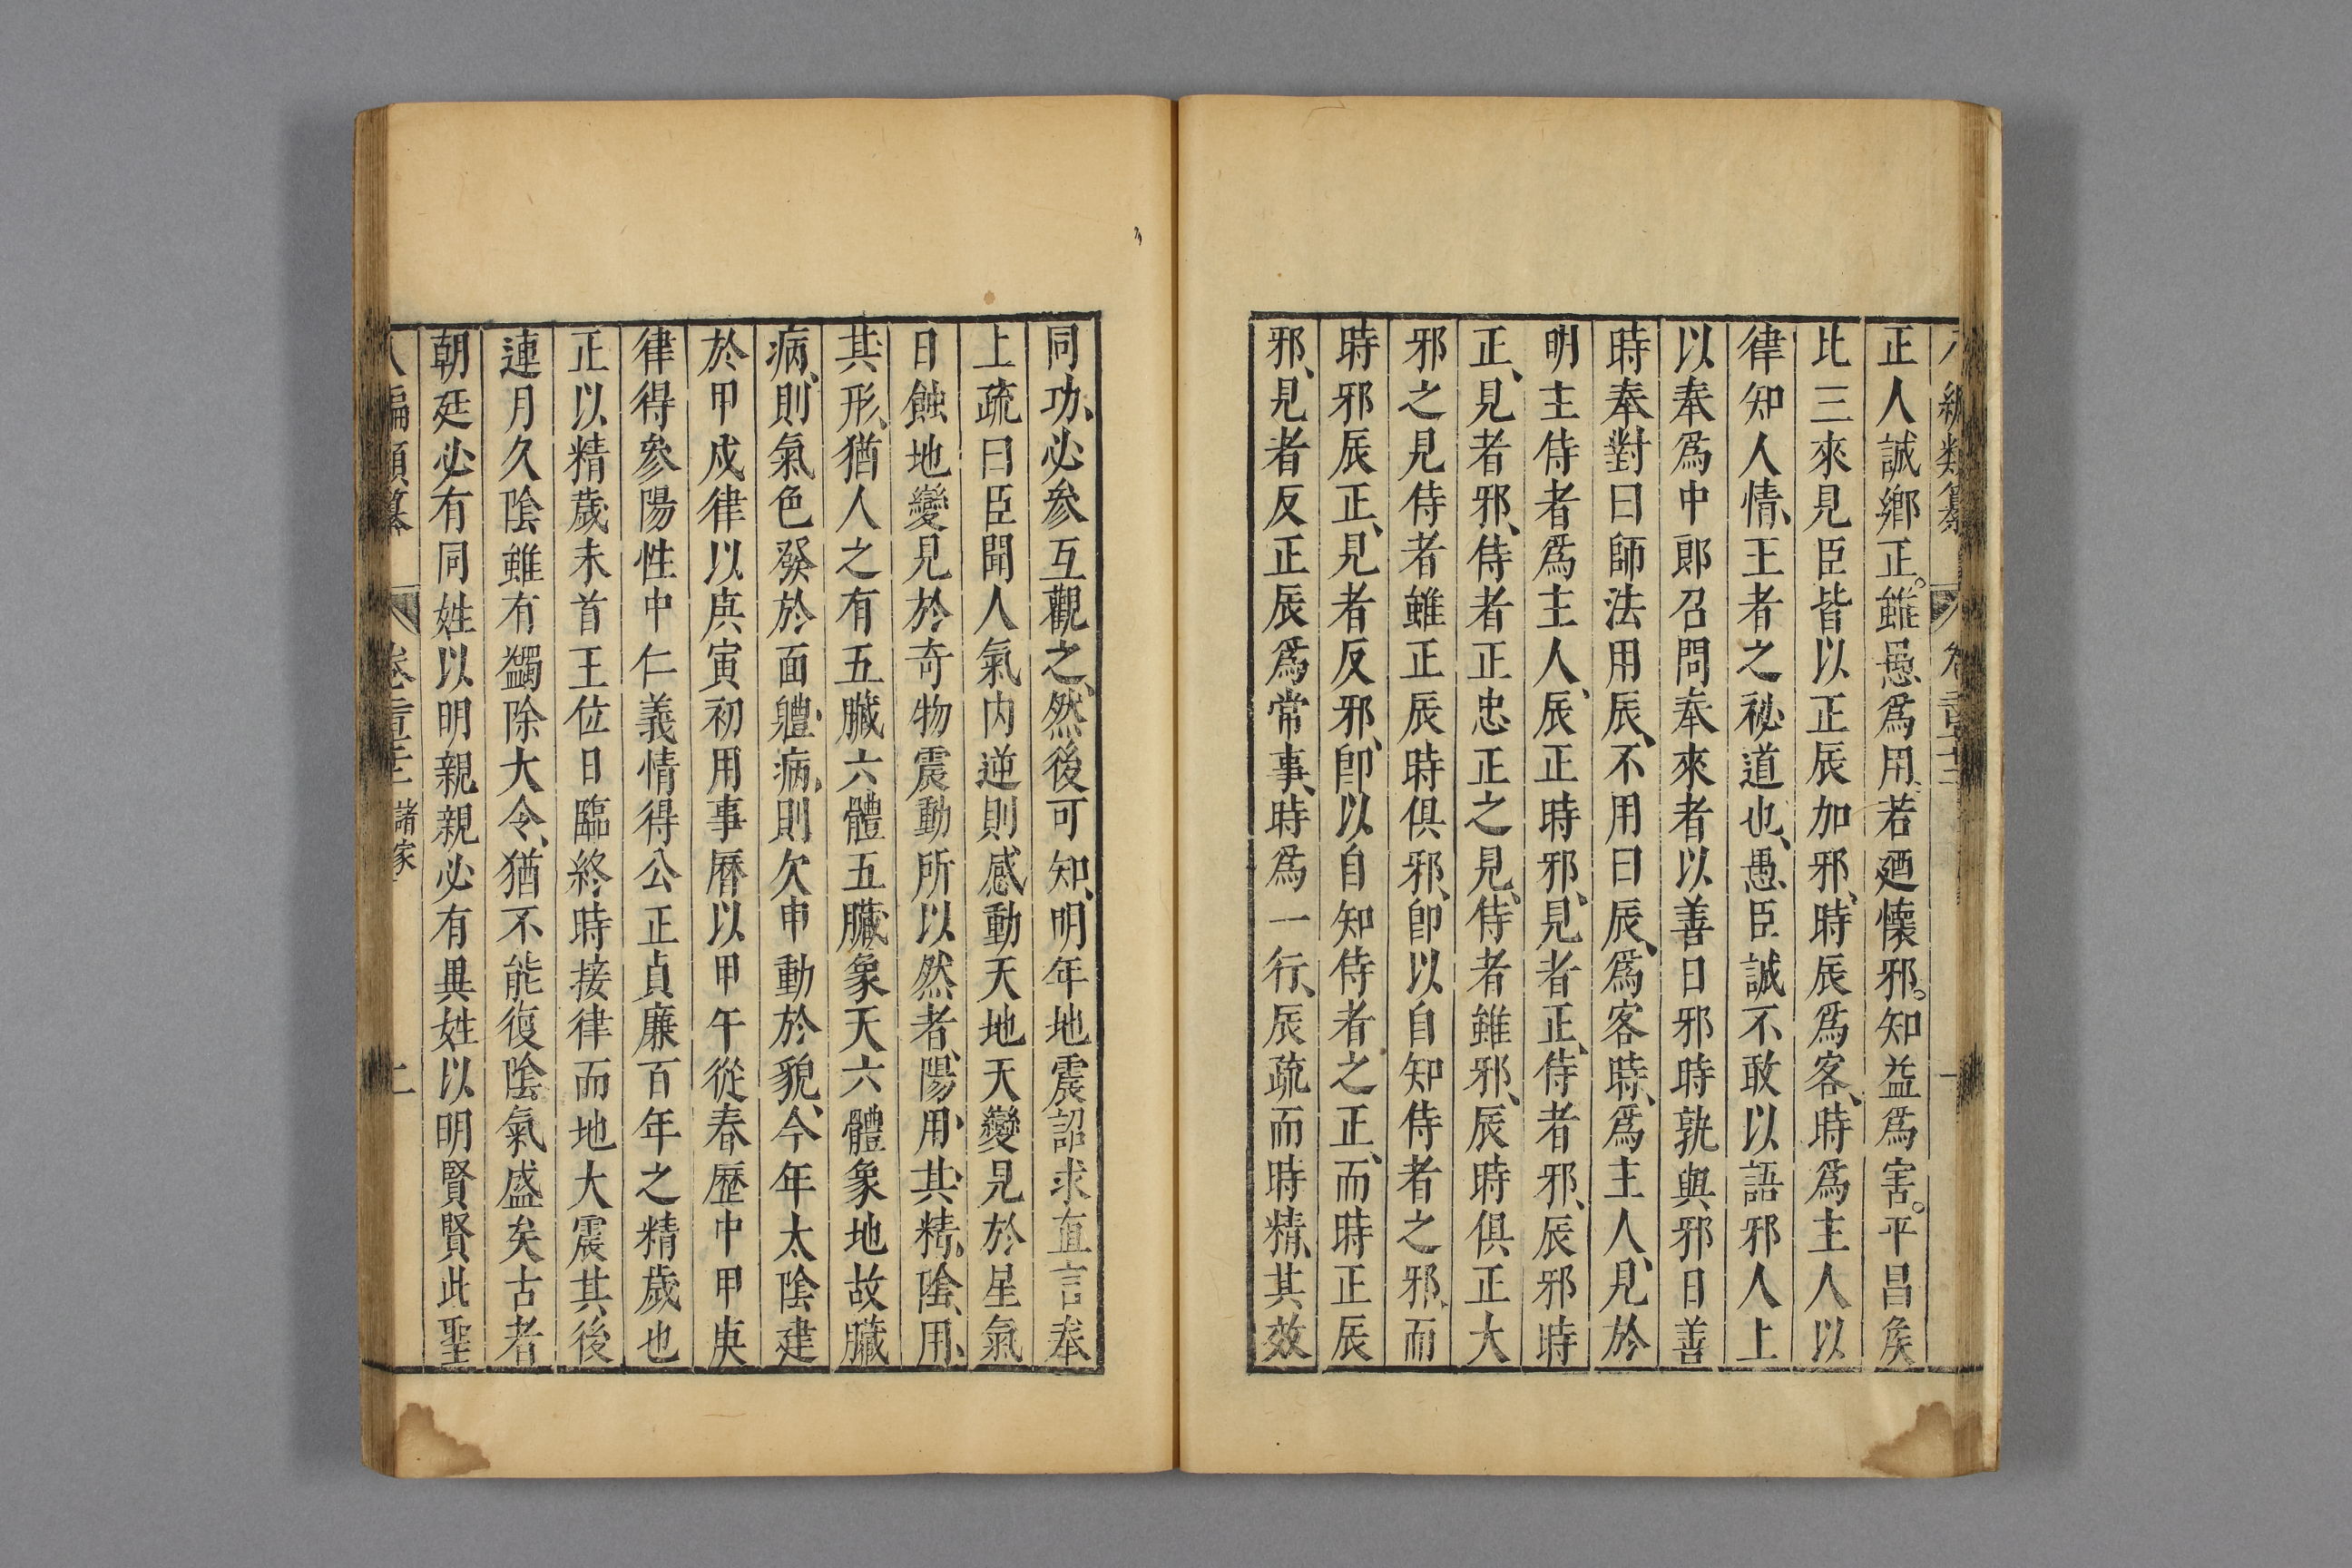 編類纂
正人誠鄉正。雖愚爲用、若廼懷邪。知益爲害。平昌矦
比三來見臣皆以正辰加邪、時辰爲客、時爲主人以
律知人情、王者之祕道也、愚臣誠不敢以語邪人上
以奉爲中郎召問奉來者以善日邪時孰與邪日善
時奉對曰師法用辰、不用日辰、爲客時、爲主人、見於
明主侍者爲主人、辰正時邪、見者正、侍者邪、辰邪時
正、見者邪、侍者正忠正之見、侍者雖邪、辰時俱正大
邪之見侍者雖正辰時俱邪、卽以自知侍者之邪、而
時邪辰正、見者反邪、卽以自知侍者之正、而時正辰
邪、見者反正辰爲常事、時爲一行、辰疏而時精、其效
同功、必參互觀之、然後可知、明年地震詔求直言奉
上疏曰臣聞人氣內逆則感動天地天變見於星氣
日蝕地變見於奇物震動所以然者、陽用其精、陰、用、
其形、猶人之有五臟六體五臟象天六體象地故臟
病、則氣色發於面軆病、則欠申動於貌、今年太陰建
於甲戌律以庚寅初用事曆以甲午從春歷中甲庚
律得參陽性中仁義情得公正貞廉百年之精歲也
正以精歲未首王位日臨終時接律而地大震其後
連月久陰雖有獨除大令、猶不能復陰氣盛矣古者
朝廷必有同姓以明親親必有異姓以明賢賢此聖
編類纂 諸家 二